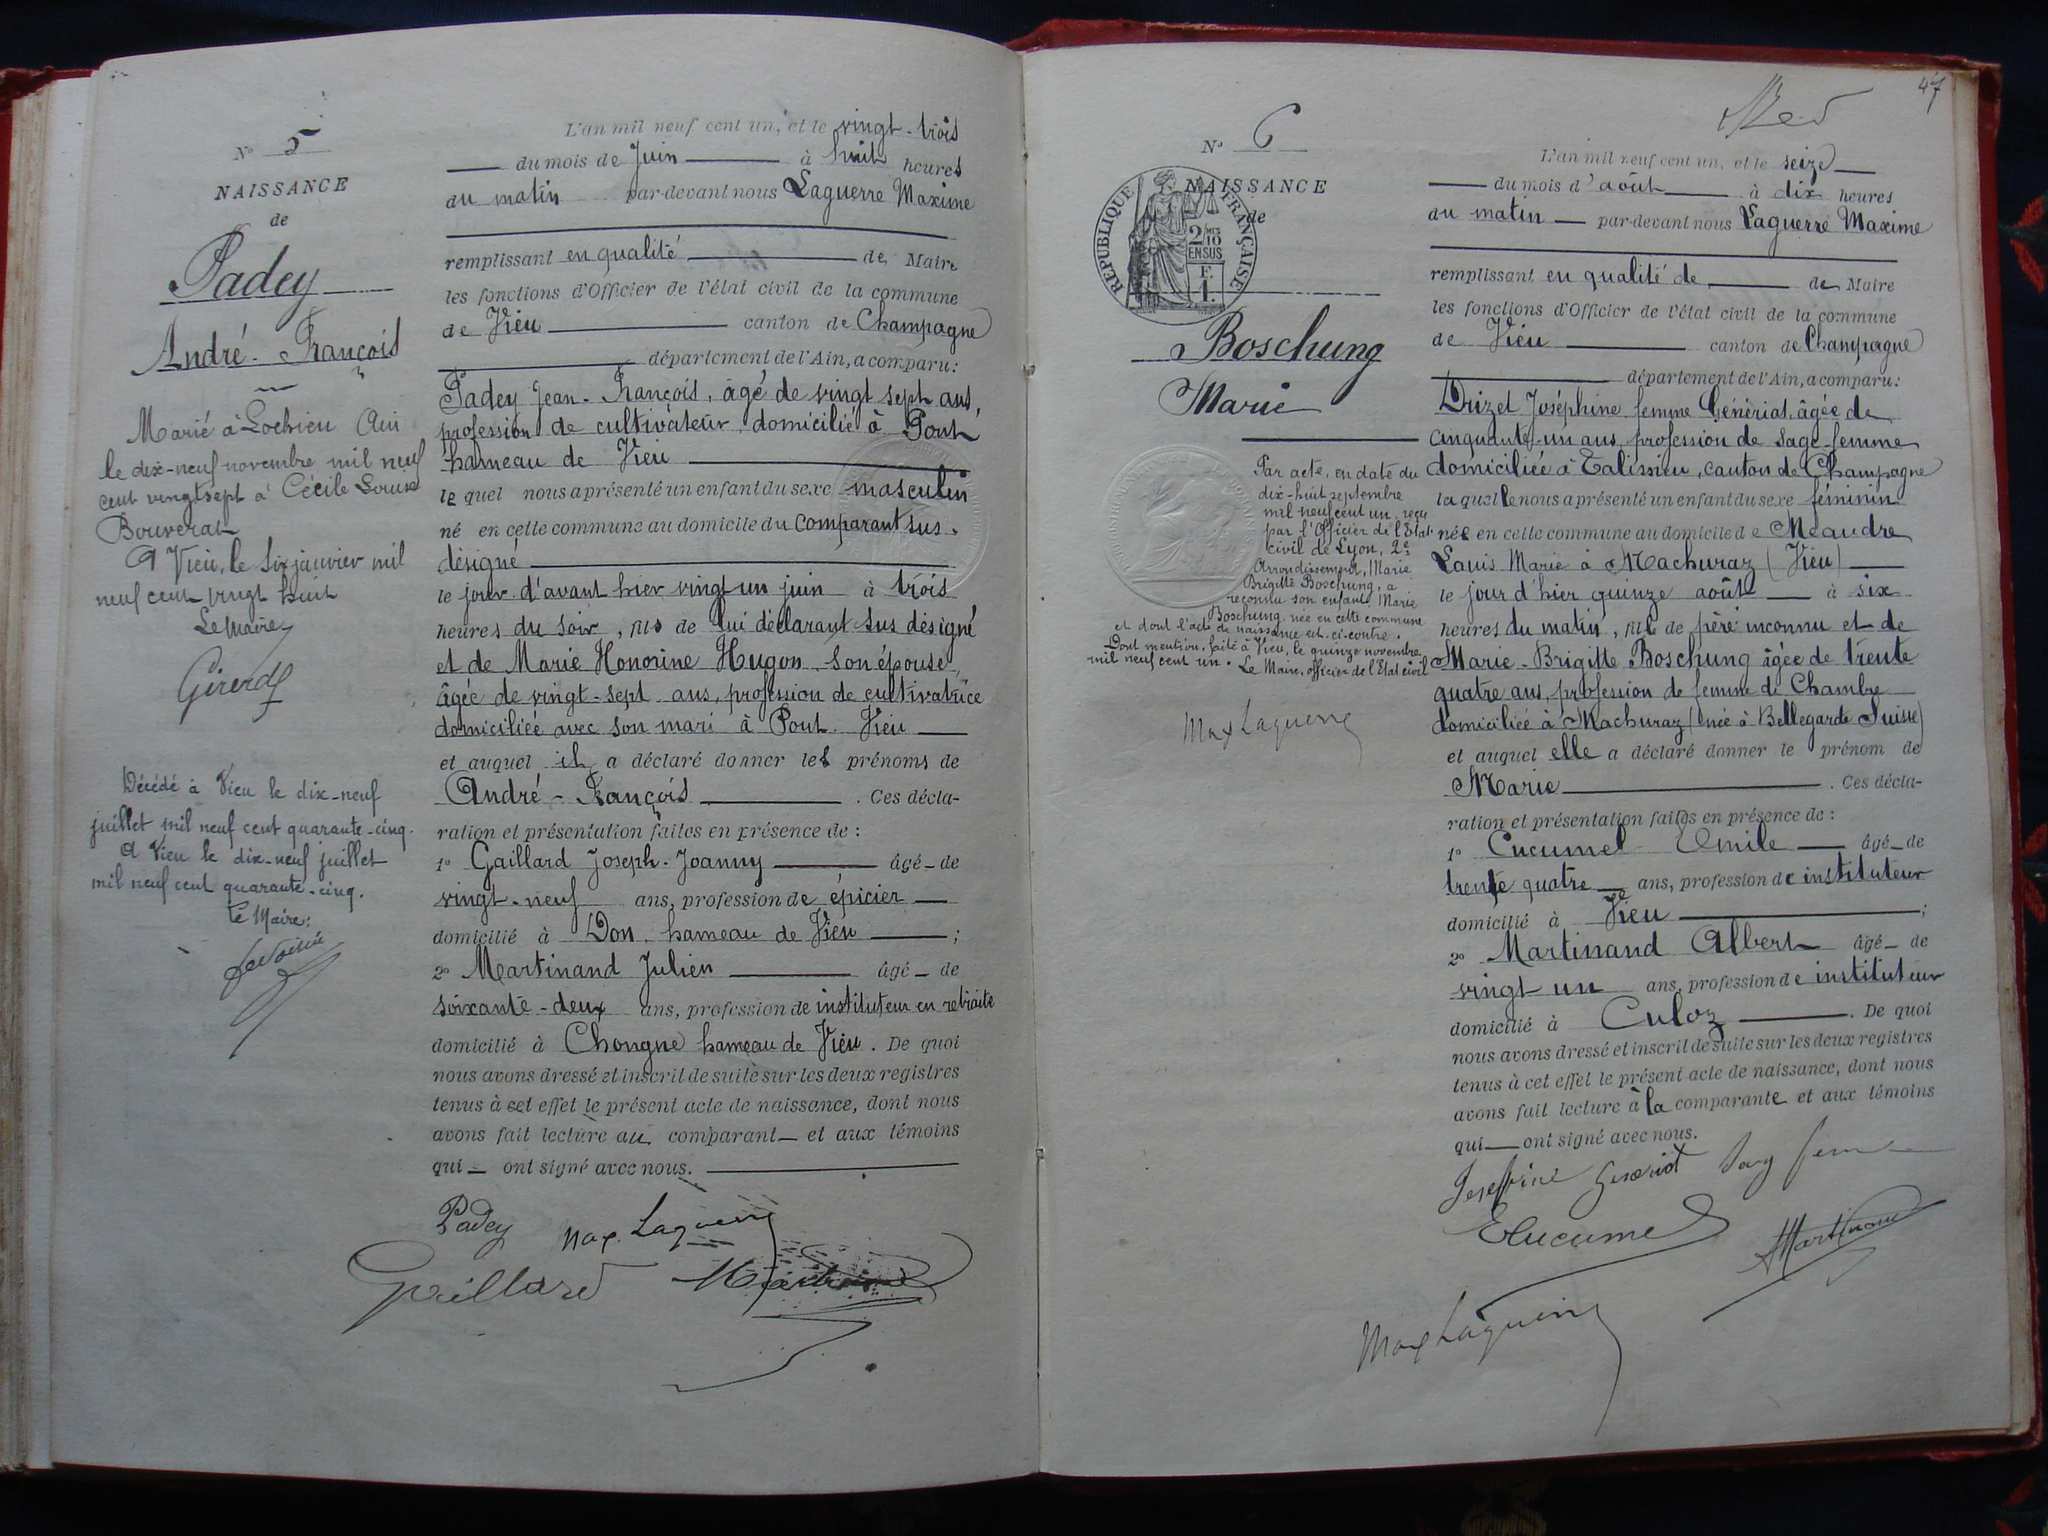 N° 5
NAISSANCE
de
Padey
André-François
Marié à Lochieu Ain
le dix-neuf novembre mil neuf
cent vingt sept à Cécile Louise
Bouverat
A Vieu, le six janvier mil
neuf cent vingt huit
Le Maire
Girerd
Décédé à Vieu le dix-neuf
juillet mil neuf cent quarante-cinq.
A Vieu le dix-neuf juillet
mil neuf cent quarante-cinq.
Le Maire:
L'an mil neuf cent un, et le vingt-trois
du mois de Juin à huit heures
du matin par-devant nous Laguerre Maxime
remplissant en qualité de Maire
les fonctions d'Officier de l'état civil de la commune
de Vieu canton de Champagne
département de l'Ain, a comparu:
Padey Jean-François, âgé de vingt sept ans,
profession de cultivateur domicilié à Pont
hameau de Vieu
lequel nous a présenté un enfant du sexe masculin
né en cette commune au domicile du comparant sus-
désigné
le jour d'avant hier vingt un juin à trois
heures du soir, fils de lui déclarant sus désigné
et de Marie Honorine Hugon son épouse,
âgée de vingt-sept ans, profession de cultivatrice
domiciliée avec son mari à Pont. Vieu
et auquel il a déclaré donner les prénoms de
André-François . Ces décla-
ration et présentation faites en présence de :
1° Gaillard Joseph-Joanny âgé de
vingt-neuf ans, profession de épicier
domicilié à Don, hameau de Vieu ;
2° Martinand Julien âgé de
soixante-deux ans, profession de instituteur en retraite
domicilié à Chongne hameau de Vieu. De quoi
nous avons dressé et inscrit de suite sur les deux registres
tenus à cet effet le présent acte de naissance, dont nous
avons fait lecture au comparant et aux témoins
qui ont signé avec nous.
Padey Max. Laguerre
Gaillard Martinand
47
N° 6
NAISSANCE
de
RÉPUBLIQUE FRANÇAISE
2/10
EN SUS
F.
1.
Boschung
Marie
Par acte, en date du
dix-huit septembre
mil neuf cent un, reçu
par l'Officier de l'Etat
civil de Lyon, 2e
Arrondissement, Marie
Brigitte Boschung, a
reconnu son enfant Marie
Boschung née en cette commune
et dont l'acte de naissance est ci-contre.
Dont mention, faite à Vieu, le quinze novembre
mil neuf cent un. Le Maire, officier de l'Etat civil
Max Laguerre
L'an mil neuf cent un, et le seize
du mois d'août à dix heures
du matin par-devant nous Laguerre Maxime
remplissant en qualité de de Maire
les fonctions d'Officier de l'état civil de la commune
de Vieu canton de Champagne
département de l'Ain, a comparu:
Drizet Joséphine femme Génériat, âgée de
cinquante-un ans, profession de sage-femme
domiciliée à Talissieu, canton de Champagne
laquelle nous a présenté un enfant du sexe féminin
née en cette commune au domicile de Méaudre
Louis Marie à Machuraz (Vieu)
le jour d'hier quinze août à six
heures du matin, fille de père inconnu et de
Marie-Brigitte Boschung âgée de trente
quatre ans, profession de femme de Chambre
domiciliée à Machuraz (née à Bellegarde Suisse)
et auquel elle a déclaré donner le prénom de
Marie . Ces décla-
ration et présentation faites en présence de :
1° Cucumel Emile âgé de
trente quatre ans, profession de instituteur
domicilié à Vieu ;
2° Martinand Albert âgé de
vingt un ans, profession de instituteur
domicilié à Culoz . De quoi
nous avons dressé et inscrit de suite sur les deux registres
tenus à cet effet le présent acte de naissance, dont nous
avons fait lecture à la comparante et aux témoins
qui ont signé avec nous.
Joséphine Génériat sag femme
E Cucumel AMartinand
Max Laguerre